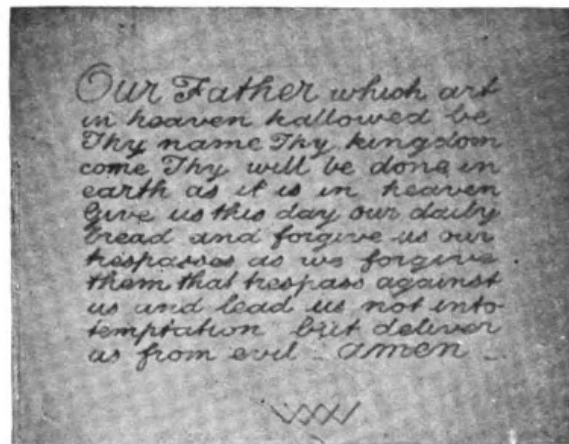 Our Father which art
in heaven hallowed be
Thy name Thy kingdom
come Thy will be done in
earth as it is in heaven
Give us this day our daily
bread and forgive us our
trespasses as we forgive
them that trespass against
us and lead us not into
temptation but deliver
us from evil - amen -